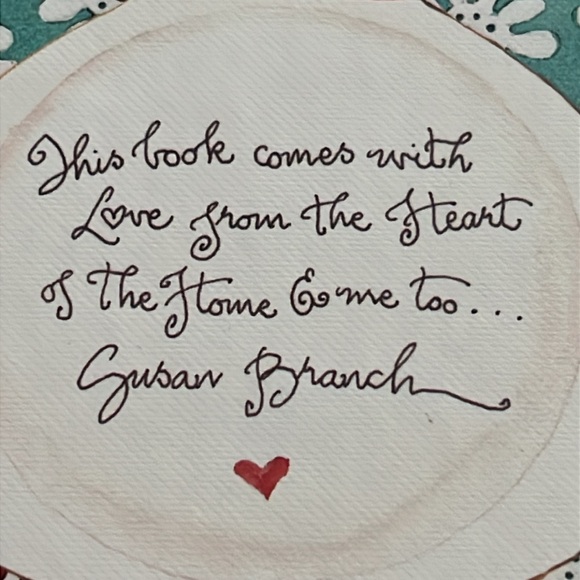 This book comes with
Love from the Heart
of the Home & me too...
Susan Branch